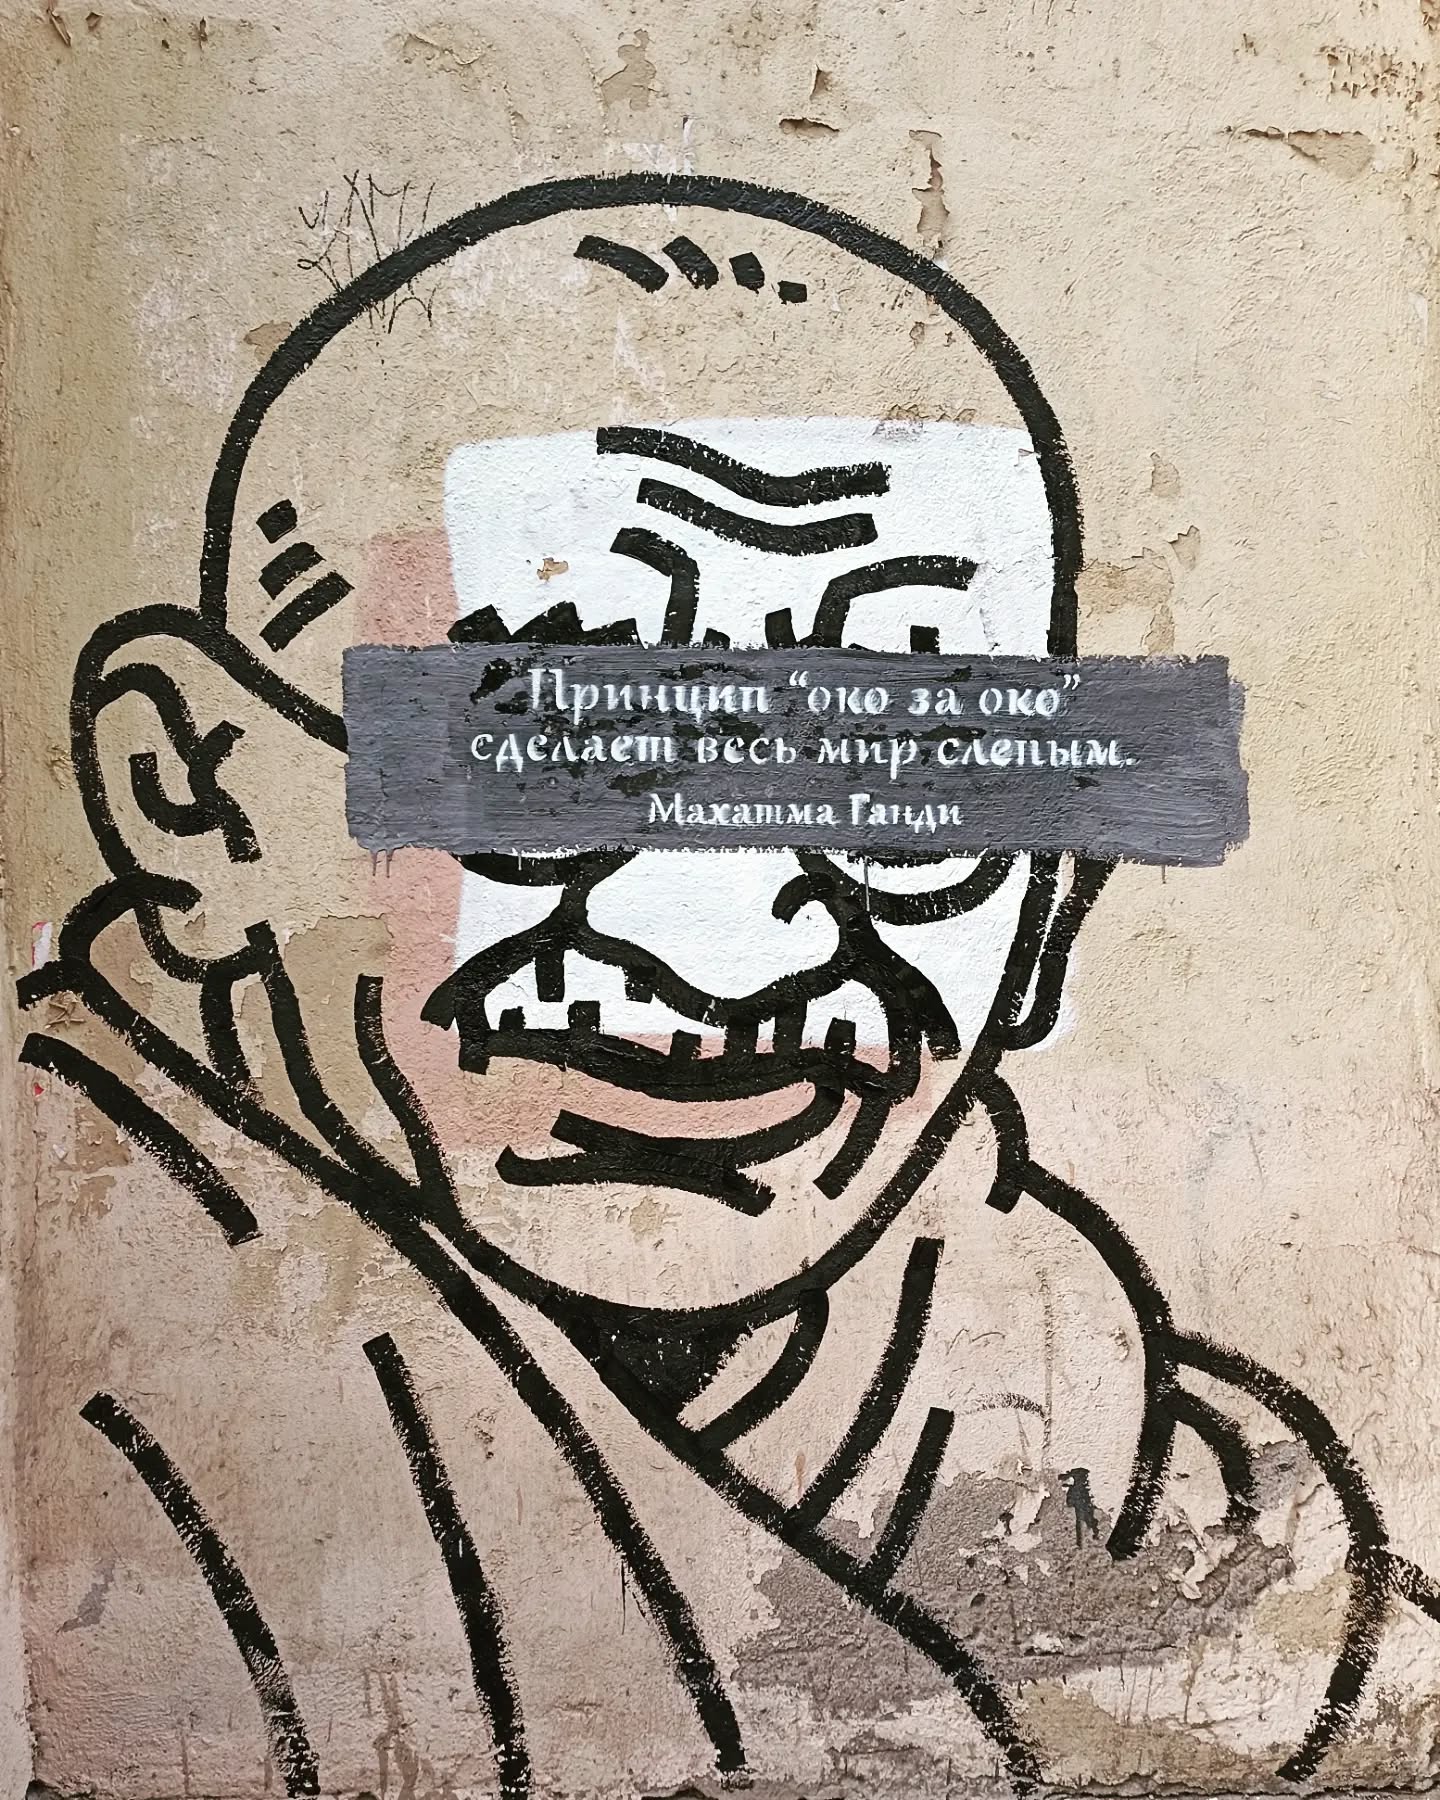 Принцип “око за око”
сделает весь мир слепым.
Махатма Ганди